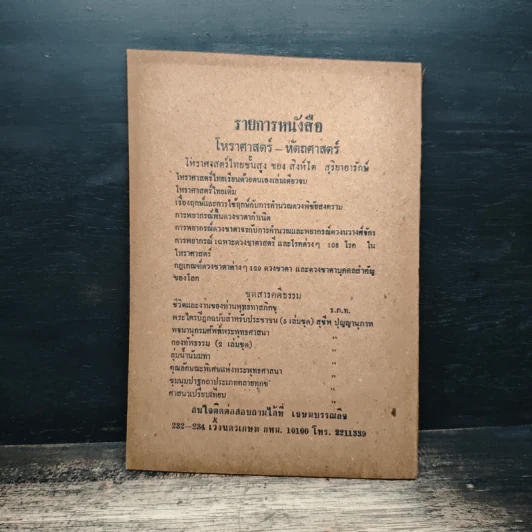 รายการหนังสือ
โหราศาสตร์ – หัตถศาสตร์
โหราศาสตร์ไทยชั้นสูง ของ สิงห์โต สุริยาอารักษ์
โหราศาสตร์ไทยเรียนด้วยตนเองเล่มเดียวจบ
โหราศาสตร์ไทยเดิม
เรื่องฤกษ์และการใช้ฤกษ์กับการคำนวณดวงพิชัยสงคราม
การพยากรณ์พื้นดวงชาตากำเนิด
การพยากรณ์ดวงชาตาจรกับการคำนวณและพยากรณ์ดวงนวางค์จักร
การพยากรณ์ เฉพาะดวงชาตาสตรี และโรคต่างๆ 108 โรค ใน
โหราศาสตร์
กฎเกณฑ์ดวงชาตาต่างๆ ดวงชาตา และดวงชาตาบุคคลสำคัญ
ของโลก
ชุดสารคดีธรรม
ชีวิตและงานของท่านพุทธทาสภิกขุ ร.ภ.ท.
พระไตรปิฎกฉบับสำหรับประชาชน (5 เล่มชุด) สุชีพ ปุญญานุภาพ
พจนานุกรมศัพท์พระพุทธศาสนา "
กองทัพธรรม (2 เล่มชุด) "
ลุ่มน้ำนัมมทา "
คุณลักษณะพิเศษแห่งพระพุทธศาสนา "
ชุมนุมปาฐกถาประเภทคลายทุกข์ "
ศาสนาเปรียบเทียบ "
สนใจติดต่อสอบถามได้ที่ เขษมบรรณกิจ
232–234 เวิ้งนครเกษม กทม. 10100 โทร. 2211339